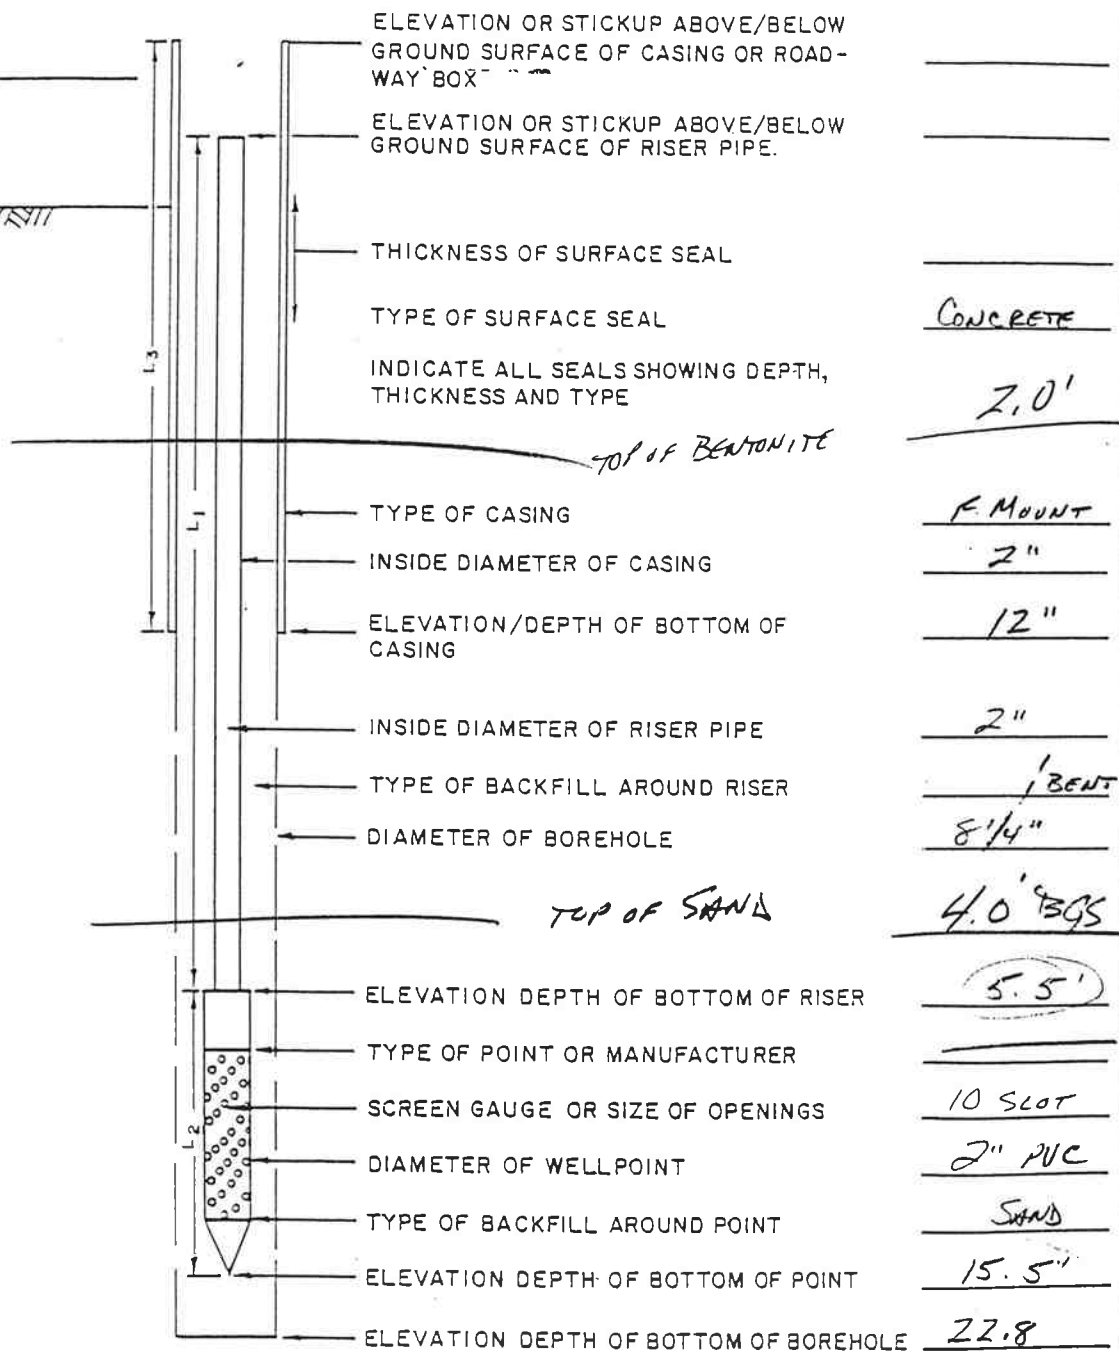 ELEVATION OR STICKUP ABOVE/BELOW
GROUND SURFACE OF CASING OR ROAD-
WAY BOX
ELEVATION OR STICKUP ABOVE/BELOW
GROUND SURFACE OF RISER PIPE.
THICKNESS OF SURFACE SEAL
TYPE OF SURFACE SEAL CONCRETE
INDICATE ALL SEALS SHOWING DEPTH,
THICKNESS AND TYPE 2.0'
L3
TOP OF BENTONITE
L1
TYPE OF CASING F. MOUNT
INSIDE DIAMETER OF CASING 2"
ELEVATION/DEPTH OF BOTTOM OF 12"
CASING
INSIDE DIAMETER OF RISER PIPE 2"
TYPE OF BACKFILL AROUND RISER BENT
DIAMETER OF BOREHOLE 8 1/4"
TOP OF SAND 4.0' BGS
ELEVATION DEPTH OF BOTTOM OF RISER 5.5'
TYPE OF POINT OR MANUFACTURER
SCREEN GAUGE OR SIZE OF OPENINGS 10 SLOT
L2
DIAMETER OF WELLPOINT 2" PVC
TYPE OF BACKFILL AROUND POINT SAND
ELEVATION DEPTH OF BOTTOM OF POINT 15.5'
ELEVATION DEPTH OF BOTTOM OF BOREHOLE 22.8